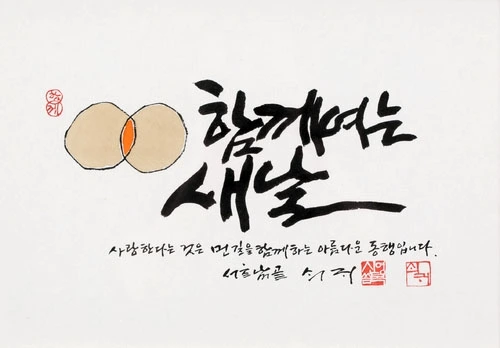 함께
함께여는
새날
사랑한다는 것은 먼 길을 함께하는 아름다운 동행입니다.